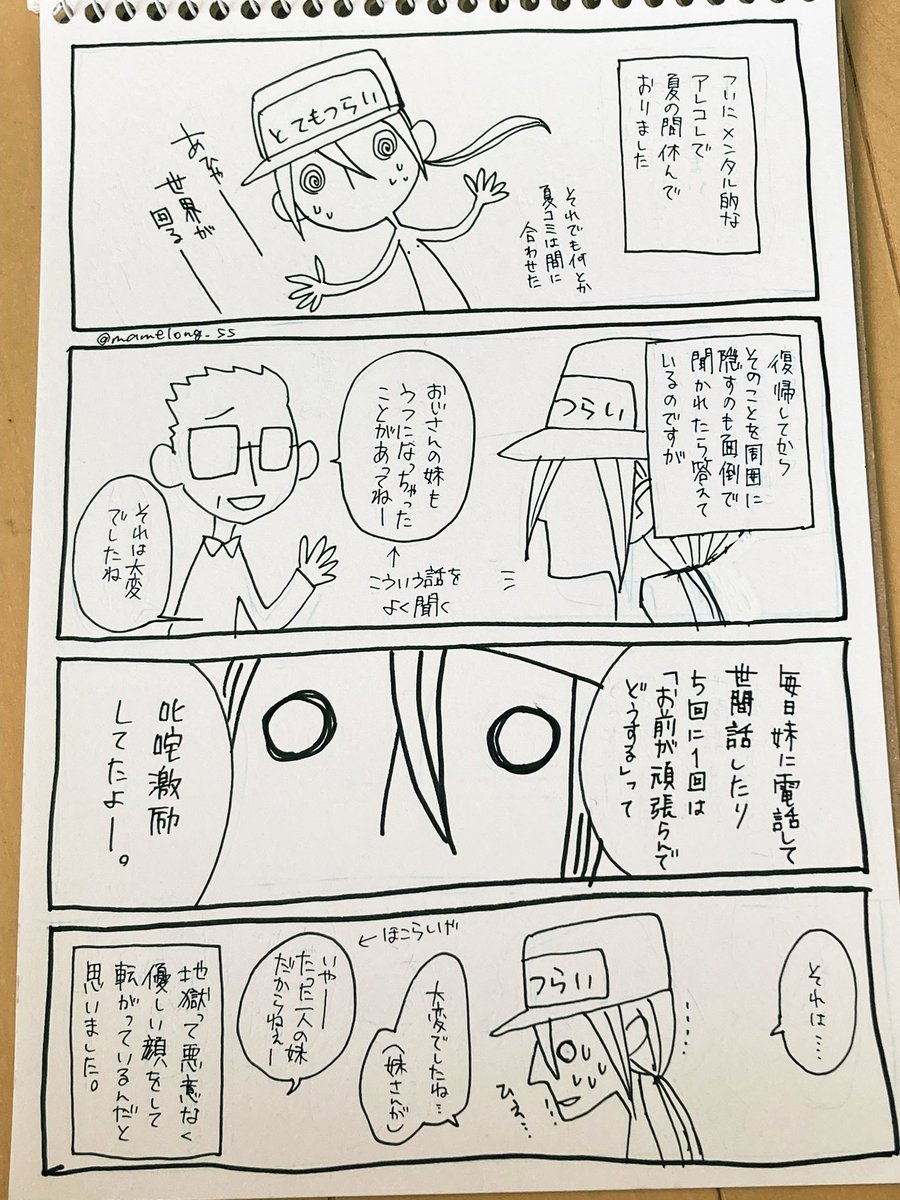 ついにメンタル的な
アレコレで
夏の間休んで
おりました
とてもつらい
それでも何とか
夏コミは間に
合わせた
あひゃー
世界が
回るー
@mamelong_ss
復帰してから
そのことを周囲に
隠すのも面倒で
聞かれたら答えて
いるのですが
つらい
おじさんの妹も
うつになっちゃった
ことがあってねー
↑
こういう話を
よく聞く
それは大変
でしたね
毎日妹に電話して
世間話したり
5回に1回は
「お前が頑張らんで
どうする」って
叱咤激励
してたよー。
それは……
つらい
……
ひぇ…
大変でしたね…
(妹さんが)
←ほこらいや
いやー
たった一人の妹
だからねぇー
地獄って悪意なく
優しい顔をして
転がっているんだと
思いました。